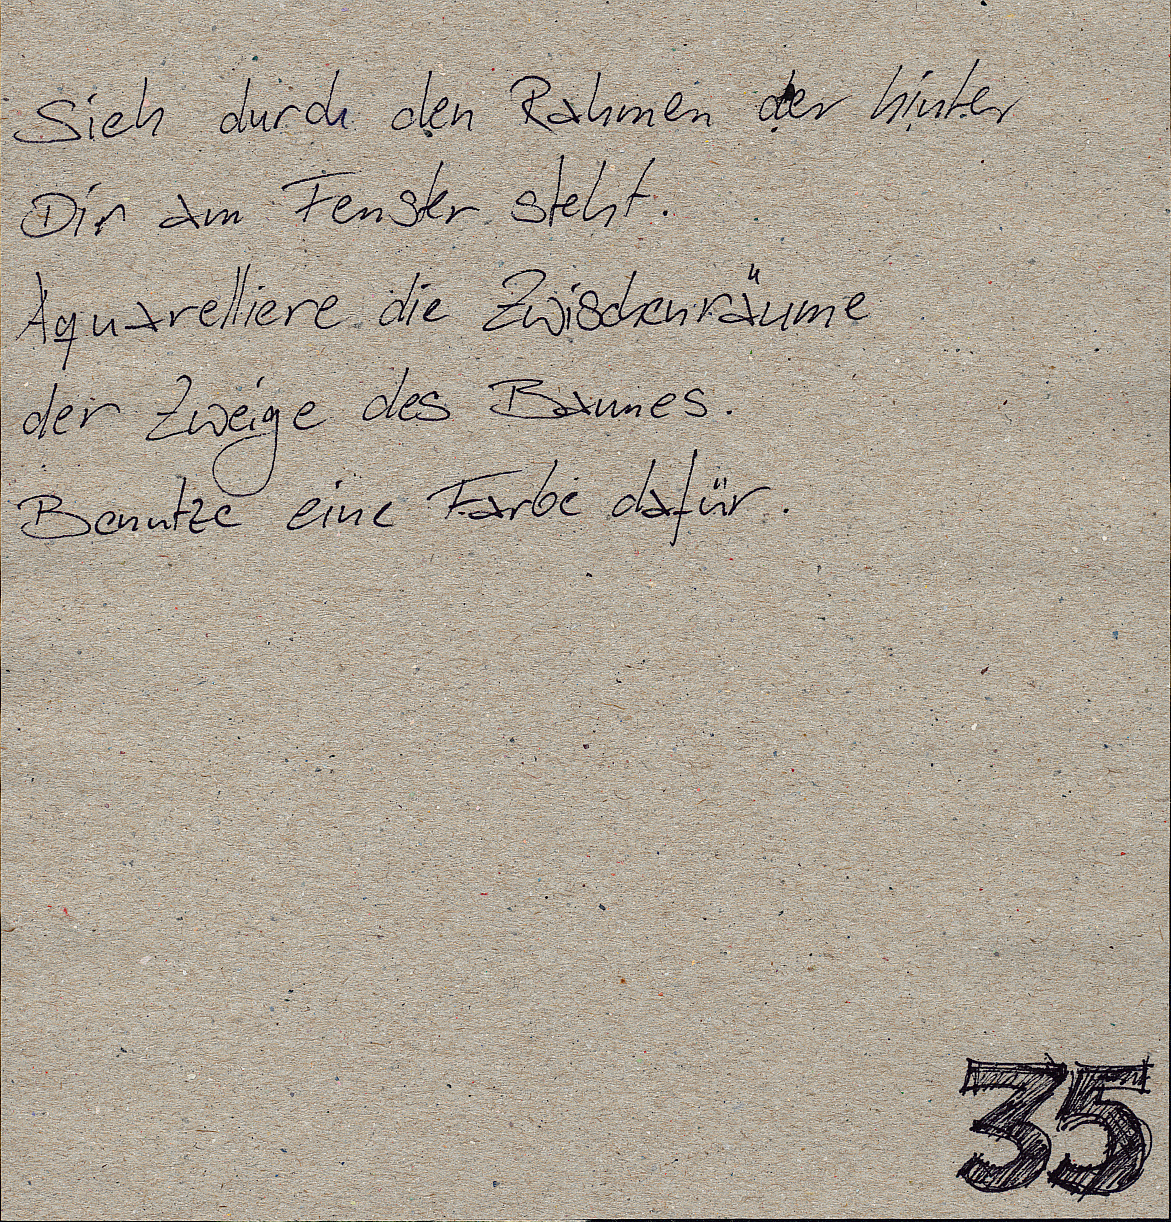 Sieh durch den Rahmen der hinter
Dir am Fenster steht.
Aquarelliere die Zwischenräume
der Zweige des Baumes.
Benutze eine Farbe dafür.
35